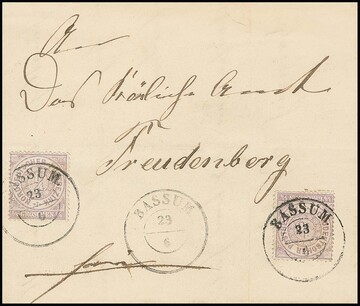 An
Das Königliche Amt
Freudenberg
BASSUM.
23
6
BASSUM
23
6
BASSUM.
23
6